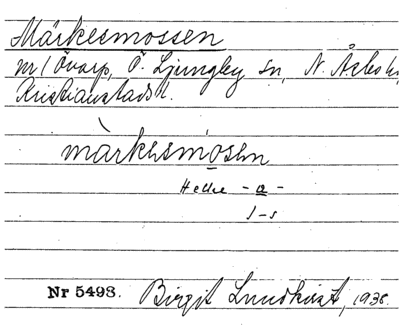 Märkesmossen
nr 1 Övarp, Ö. Ljungby sn, N. Åsbo hd,
Kristianstads l.
màrkəsmósən
Heller - a -
l - s
Nr 5498. Birgit Lundkvist, 1938.